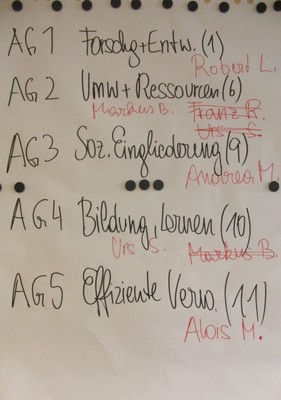 AG 1 Forschg + Entw. (1)
Robert L.
AG 2 Umw + Ressourcen (6)
Markus B. Franz R.
Urs S.
AG 3 Soz. Eingliederung (9)
Andrea M.
AG 4 Bildung, Lernen (10)
Urs S. Markus B.
AG 5 Effiziente Verw. (11)
Alois M.